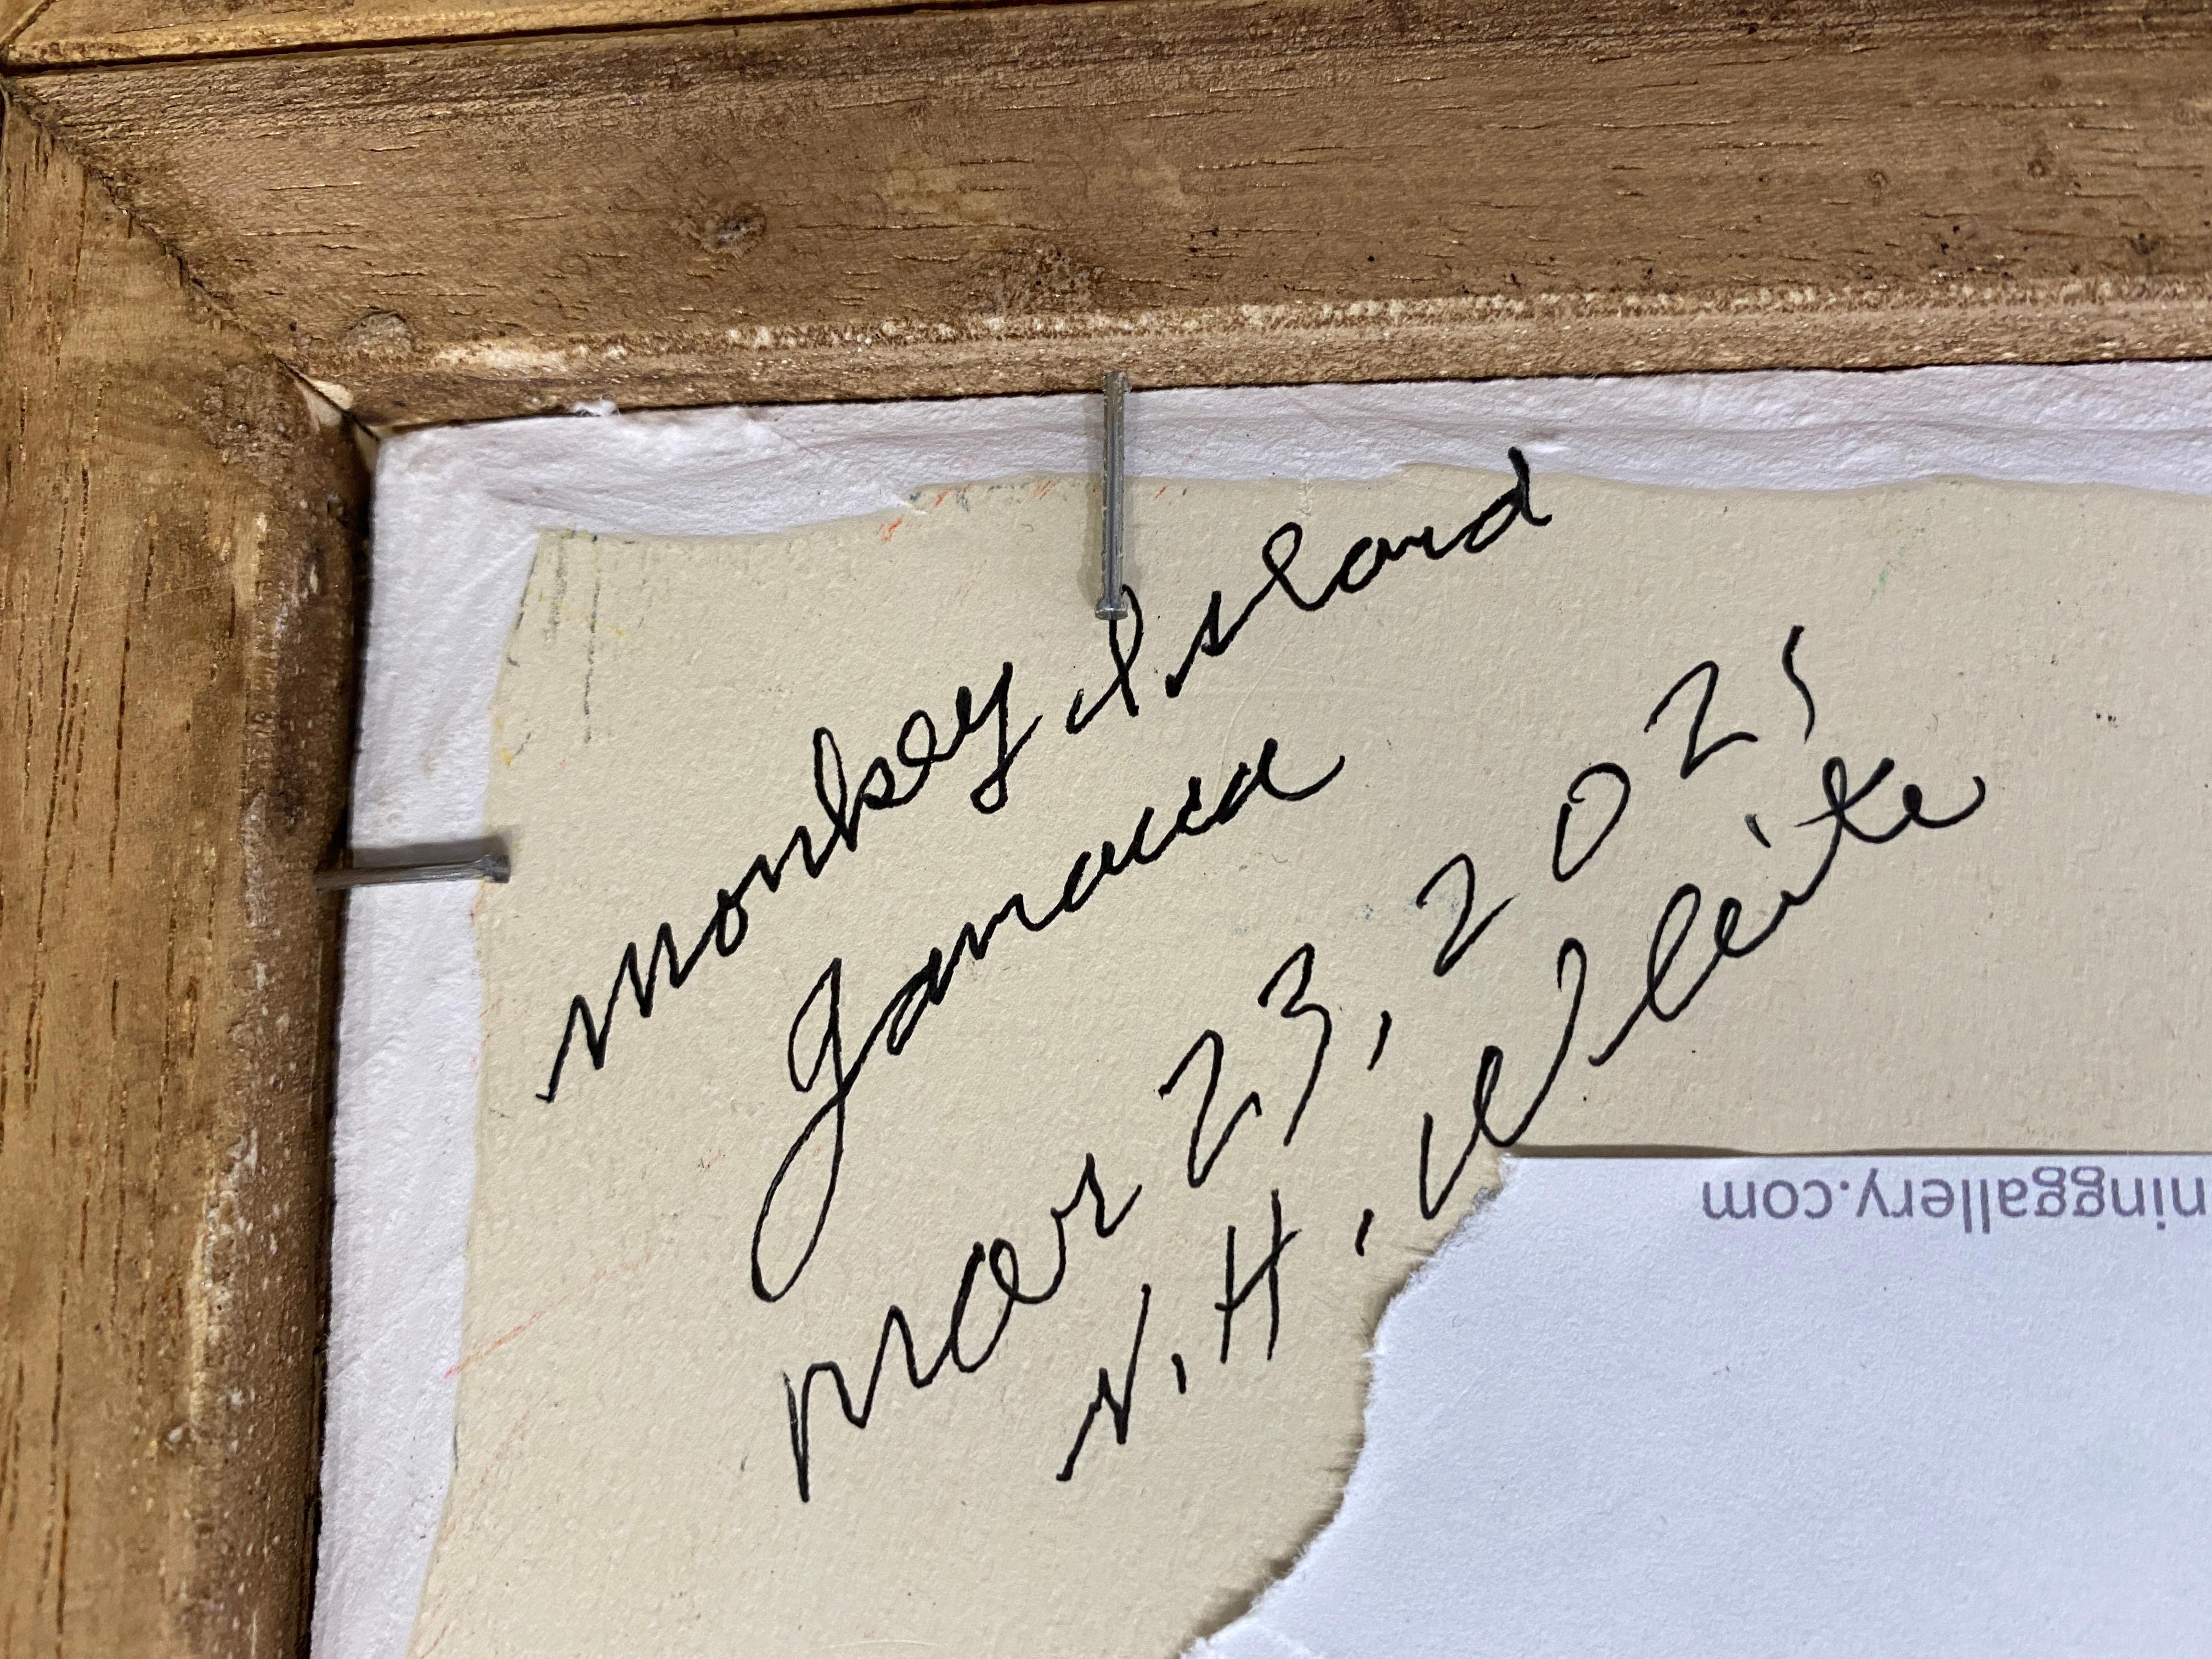 Monkey Island
Jamaica
Mar 23, 2021
N. H. White
ninggallery.com